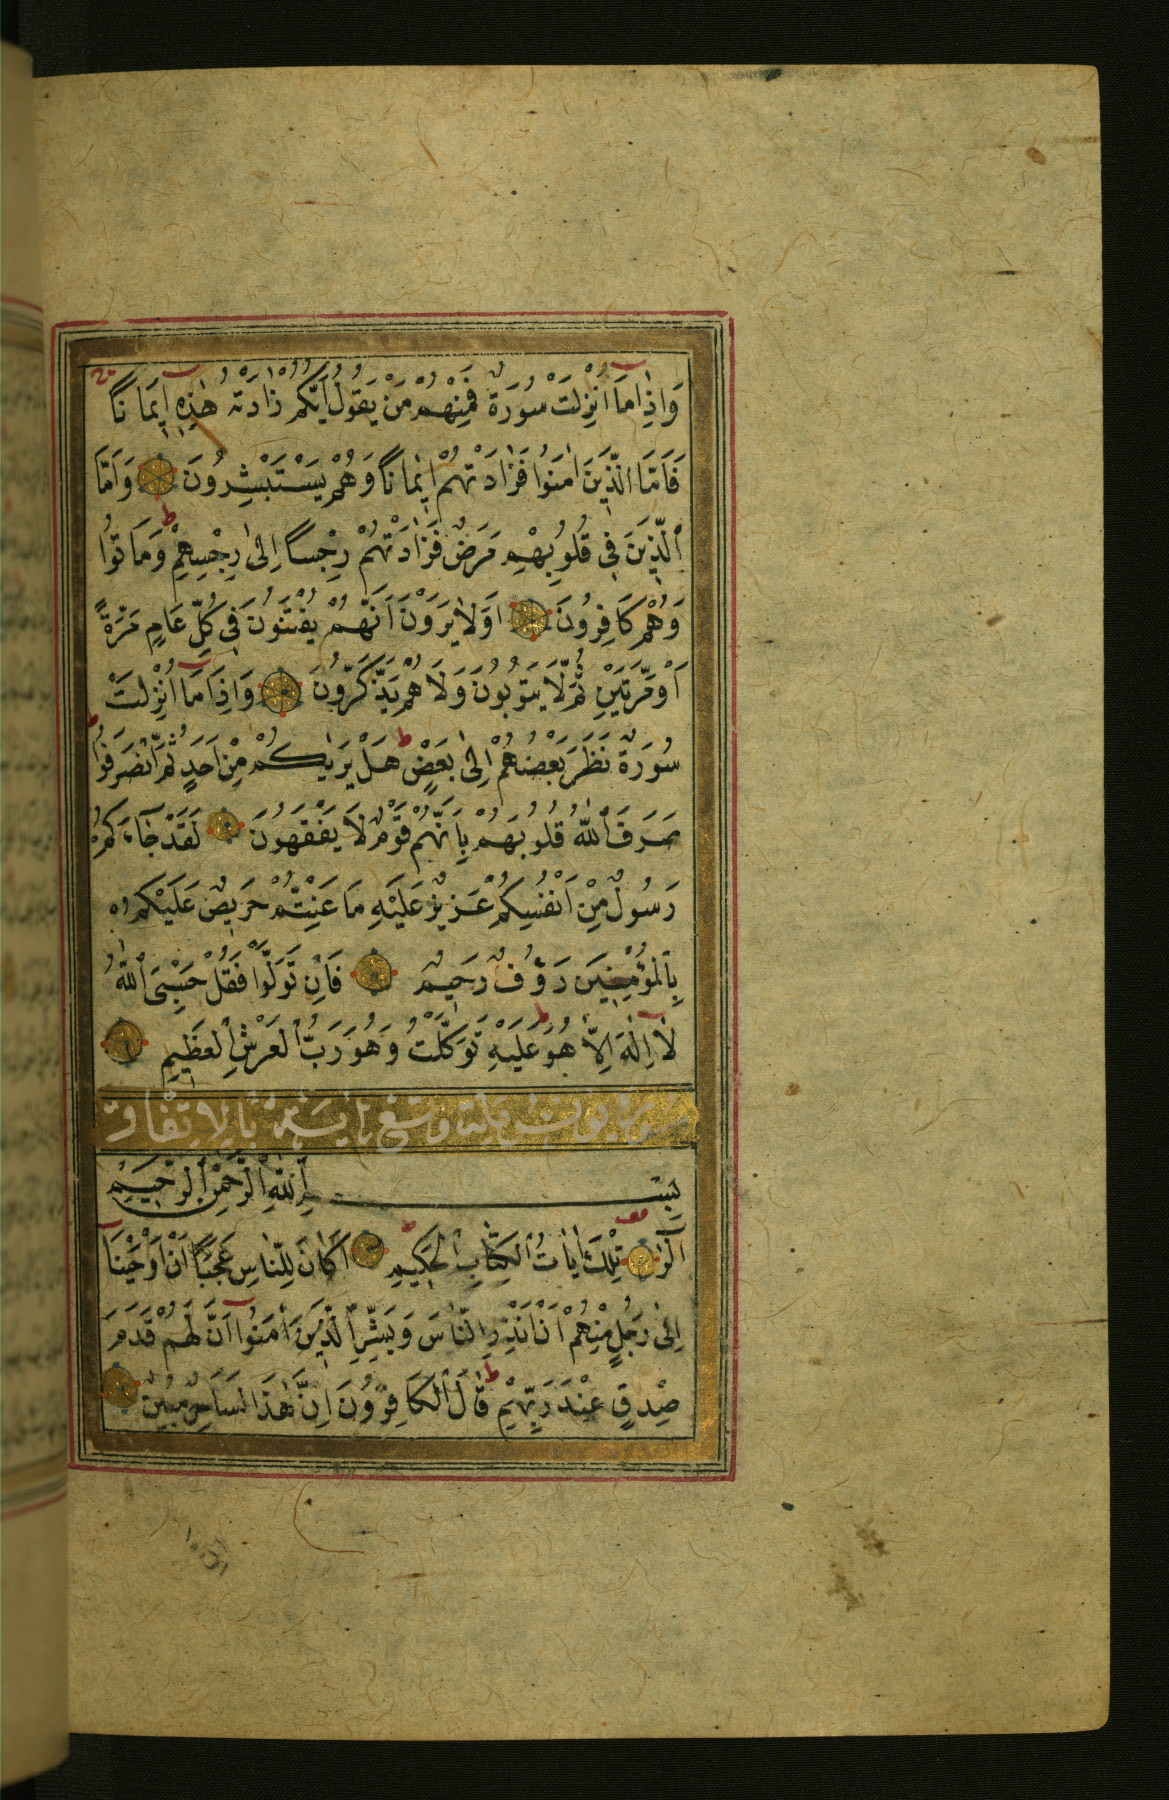 وَاِذٰا مَا اُنْزِلَتْ سُورَةٌ فَمِنْهُمْ مَنْ يَقُولُ اَيُّكُمْ زٰادَتْهُ هٰذِهِ اِيمَانًا
فَاَمَّا الَّذِينَ اٰمَنُوا فَزٰادَتْهُمْ اِيمٰانًا وَهُمْ يَسْتَبْشِرُونَ وَاَمَّا
الَّذِينَ فِي قُلُوبِهِمْ مَرَضٌ فَزٰادَتْهُمْ رِجْسًا اِلىٰ رِجْسِهِمْ وَمَاتُوا
وَهُمْ كَافِرُونَ اَوَلٰا يَرَوْنَ اَنَّهُمْ يُفْتَنُونَ فِي كُلِّ عَامٍ مَرَّةً
اَوْ مَرَّتَيْنِ ثُمَّ لَا يَتُوبُونَ وَلَا هُمْ يَذَّكَّرُونَ وَاِذَا مَا اُنْزِلَتْ
سُورَةٌ نَظَرَ بَعْضُهُمْ اِلىٰ بَعْضٍ هَلْ يَرٰيكُمْ مِنْ اَحَدٍ ثُمَّ انْصَرَفُوا
صَرَفَ اللّٰهُ قُلُوبَهُمْ بِاَنَّهُمْ قَوْمٌ لَا يَفْقَهُونَ لَقَدْ جَاءَكُمْ
رَسُولٌ مِنْ اَنْفُسِكُمْ عَزِيزٌ عَلَيْهِ مَا عَنِتُّمْ حَرِيصٌ عَلَيْكُمْ
بِالْمُؤْمِنِينَ رَؤُفٌ رَحِيمٌ فَاِنْ تَوَلَّوْا فَقُلْ حَسْبِيَ اللّٰهُ
لٰا اِلٰهَ اِلَّا هُوَ عَلَيْهِ تَوَكَّلْتُ وَهُوَ رَبُّ الْعَرْشِ الْعَظِيمِ
سورة يونس مائة وتسع اية بالاتفاق
بِسْمِ اللّٰهِ الرَّحْمٰنِ الرَّحِيمِ
الٓرٰ تِلْكَ اٰيَاتُ الْكِتَابِ الْحَكِيمِ اَكَانَ لِلنَّاسِ عَجَبًا اَنْ اَوْحَيْنَا
اِلىٰ رَجُلٍ مِنْهُمْ اَنْ اَنْذِرِ النَّاسَ وَبَشِّرِ الَّذِينَ اٰمَنُوا اَنَّ لَهُمْ قَدَمَ
صِدْقٍ عِنْدَ رَبِّهِمْ قَالَ الْكَافِرُونَ اِنَّ هٰذَا لَسَاحِرٌ مُبِينٌ